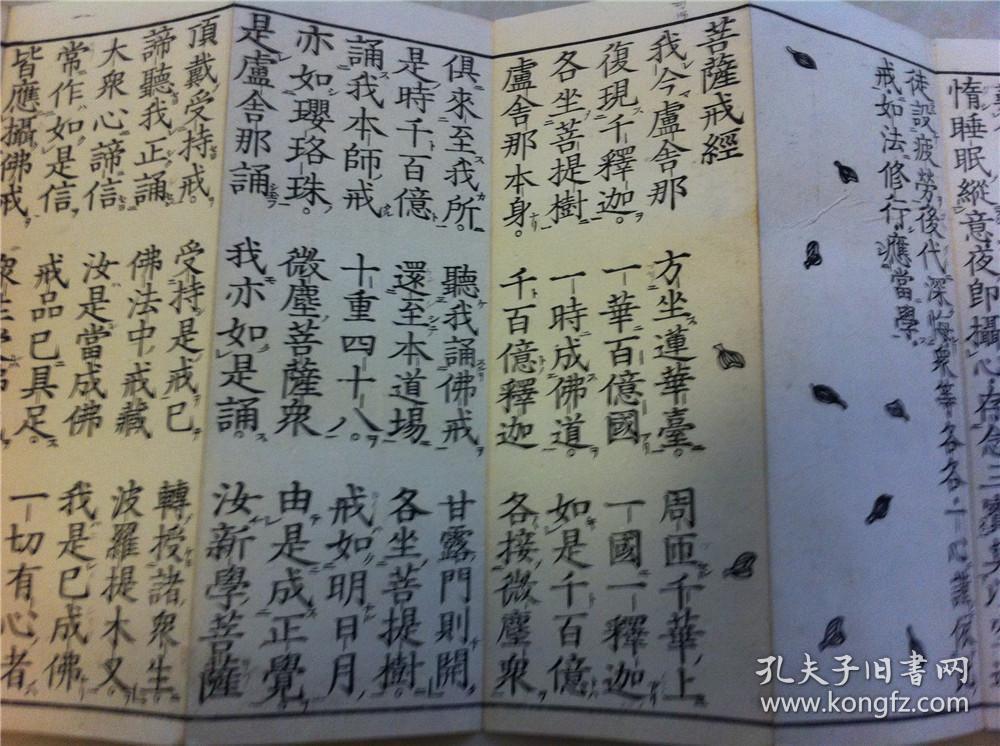 惰睡眠縱意夜即攝心存念三寶莫以空
徒設疲勞後代深悔衆等各各一心謹依
戒如法修行應當學
菩薩戒經
我今盧舍那 方坐蓮華臺。 周匝千華上
復現千釋迦。 一華百億國 一國一釋迦
各坐菩提樹 一時成佛道。 如是千百億
盧舍那本身。 千百億釋迦 各接微塵衆
俱來至我所。 聽我誦佛戒 甘露門則開
是時千百億 還至本道場 各坐菩提樹
誦我本師戒 十重四十八。 戒如明日月
亦如瓔珞珠。 微塵菩薩衆 由是成正覺
是盧舍那誦 我亦如是誦。 汝新學菩薩
頂戴受持戒。 受持是戒已 轉授諸衆生
諦聽我正誦 佛法中戒藏 波羅提木叉
大衆心諦信 汝是當成佛 我是已成佛
常作如是信 戒品已具足。 一切有心者
皆應攝佛戒。 衆生
孔夫子旧書网
www.kongfz.com